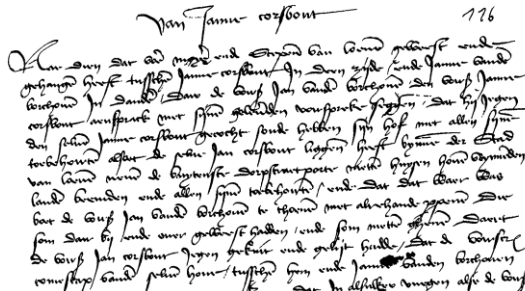 Van Janne corsbout 116
Naer dien dat voer meyer ende Scepen van loeven geweest ende
gehangen heeft tusschen Janne corsbout In deen zyde / ende Janne vanden
borchoven In dandere / daer de voirs Jan vanden borchoven den voirs Janne
corsbout aensprack met synen geleerden vorspreke seggen dat hy Jegen
den selven Janne corsbout gecocht soude hebben syn hof met allen synen
toebehoirten alsoe de selve Jan corsbout liggen heeft bynnen der Stad
van loeven neven de buytenste dorpstraetporte metten huysen hoven
landen beemden ende allen synen toebehoirten / ende dat dat waer was
bat de voirs Jan vanden borchoven te thoenen met alrehande goeden
som daer by ende over geweest hadden / ende som metten ghenen daert
de voirs Jan corsbout Jegen gekent ende gelyt hadde / dat de
comescap vanden selven hove / tusschen hem ende Janne vanden borchoven
dat In alsulker vuegen alse de voirs